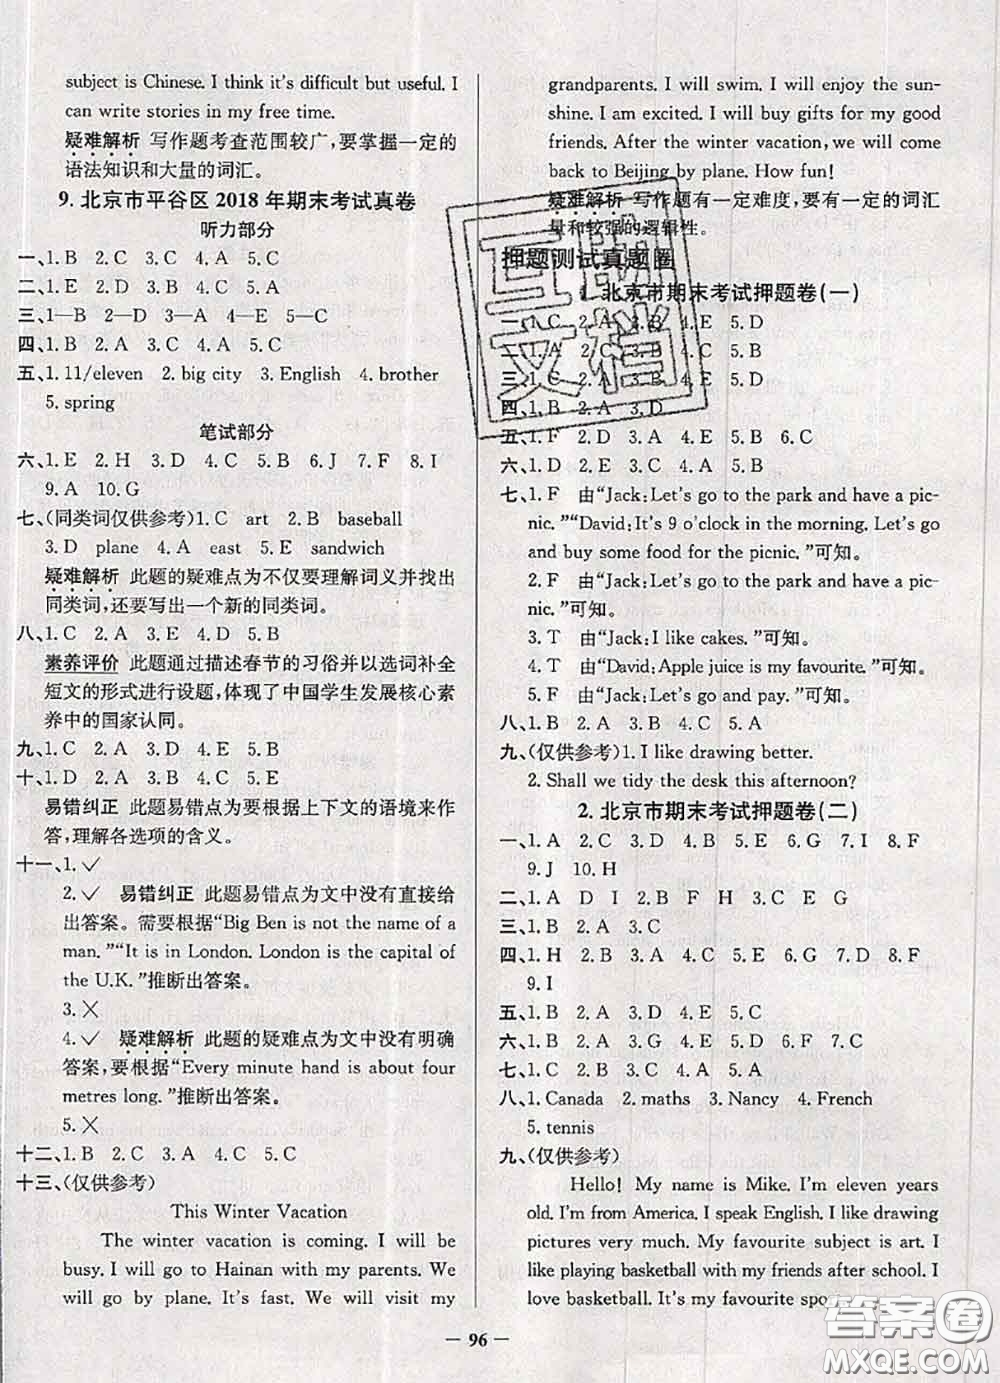 subject is Chinese. I think it's difficult but useful. I
can write stories in my free time.
疑难解析 写作题考查范围较广,要掌握一定的
语法知识和大量的词汇。
9. 北京市平谷区 2018 年期末考试真卷
听力部分
一、1. B 2. C 3. C 4. A 5. C
二、1. E 2. D 3. A 4. B 5. C
三、1—B 2—D 3—A 4—C 5—E
四、1. B 2. A 3. C 4. A 5. C
五、1. 11/eleven 2. big city 3. English 4. brother
5. spring
笔试部分
六、1. E 2. H 3. D 4. C 5. B 6. J 7. F 8. I
9. A 10. G
七、(同类词仅供参考)1. C art 2. B baseball
3. D plane 4. A east 5. E sandwich
疑难解析 此题的疑难点为不仅要理解词义并找出
同类词,还要写出一个新的同类词。
八、1. C 2. A 3. E 4. D 5. B
素养评价 此题通过描述春节的习俗并以选词补全
短文的形式进行设题,体现了中国学生发展核心素
养中的国家认同。
九、1. C 2. A 3. D 4. E 5. B
十、1. D 2. A 3. E 4. C 5. B
易错纠正 此题易错点为要根据上下文的语境来作
答,理解各选项的含义。
十一、1. ✓
2. ✓ 易错纠正 此题易错点为文中没有直接给
出答案。需要根据“Big Ben is not the name of a
man.”“It is in London. London is the capital of
the U.K.”推断出答案。
3. ✕
4. ✓ 疑难解析 此题的疑难点为文中没有明确
答案,要根据“Every minute hand is about four
metres long.”推断出答案。
5. ✕
十二、1. B 2. B 3. C 4. A 5. C
十三、(仅供参考)
This Winter Vacation
The winter vacation is coming. I will be
busy. I will go to Hainan with my parents. We
will go by plane. It's fast. We will visit my
grandparents. I will swim. I will enjoy the sun-
shine. I am excited. I will buy gifts for my good
friends. After the winter vacation, we will come
back to Beijing by plane. How fun!
疑难解析 写作题有一定难度,要有一定的词汇
量和较强的逻辑性。
押题测试真题圈
1. 北京市期末考试押题卷(一)
一、1. C 2. A 3. B 4. E 5. D
二、1. A 2. C 3. B 4. C 5. B
三、1. C 2. A 3. B 4. E 5. D
四、1. B 2. A 3. D
五、1. F 2. D 3. A 4. E 5. B 6. C
六、1. D 2. E 3. B 4. A 5. C
七、1. F 由“Jack: Let's go to the park and have a pic-
nic.”“David: It's 9 o'clock in the morning. Let's go
and buy some food for the picnic.”可知。
2. F 由“Jack: Let's go to the park and have a pic-
nic.”可知。
3. T 由“Jack: I like cakes.”可知。
4. T 由“David: Apple juice is my favourite.”可知。
5. F 由“Jack: Let's go and pay.”可知。
八、1. B 2. A 3. B 4. C 5. A
九、(仅供参考)1. I like drawing better.
2. Shall we tidy the desk this afternoon?
2. 北京市期末考试押题卷(二)
一、1. A 2. C 3. D 4. B 5. E 6. G 7. I 8. F
9. J 10. H
二、1. A D I 2. B F H 3. C E G
三、1. B 2. A 3. C
四、1. H 2. B 3. A 4. C 5. G 6. E 7. D 8. F
9. I
五、1. B 2. A 3. D 4. E 5. C
六、1. D 2. A 3. G 4. E 5. B 6. F 7. C
七、1. C 2. B 3. B 4. A 5. C
八、1. Canada 2. maths 3. Nancy 4. French
5. tennis
九、(仅供参考)
Hello! My name is Mike. I'm eleven years
old. I'm from America. I speak English. I like drawing
pictures very much. My favourite subject is art. I
like playing basketball with my friends after school. I
love basketball. It's my favourite
— 96 —
答案圈
MXQE.COM